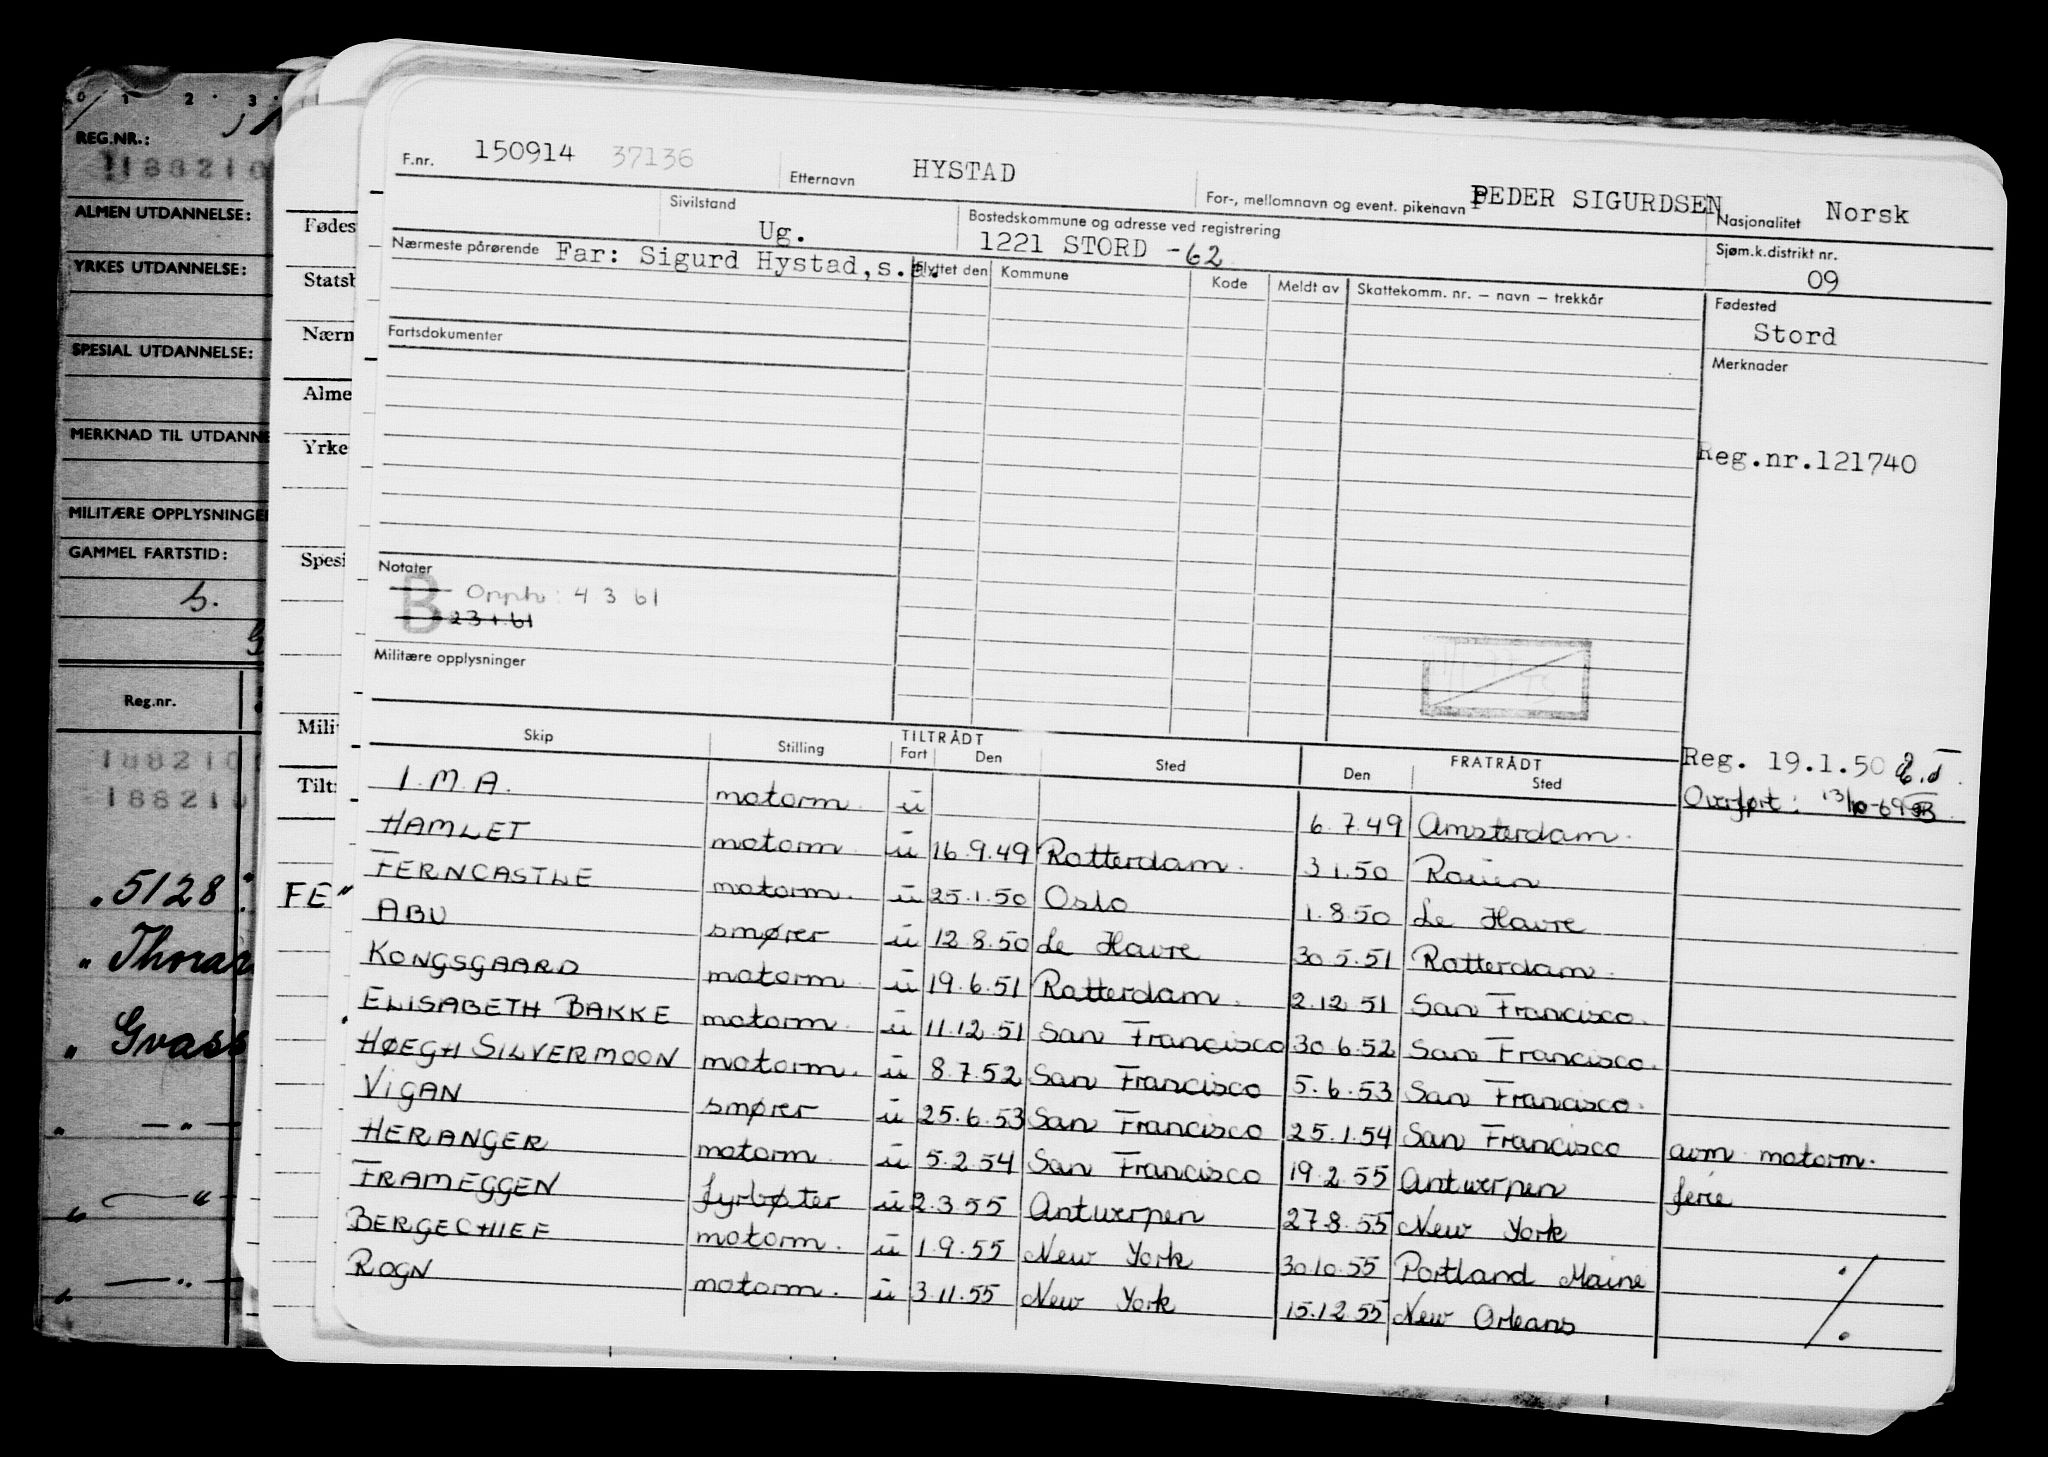 0 1 2 3
REG.NR.:
188210
ALMEN UTDANNELSE:
YRKES UTDANNELSE:
SPESIAL UTDANNELSE:
MERKNAD TIL UTDANNE
MILITÆRE OPPLYSNINGER
GAMMEL FARTSTID:
Reg.nr.
188210
188210
„ 5128
„ Thorar
„ Gvass
Fødes
Statsb
Nærm
Alme
Yrke
Spesi
Milit
Tilt
FE"
F.nr. 150914 37136 Etternavn HYSTAD For-, mellomnavn og event. pikenavn PEDER SIGURDSEN Nasjonalitet Norsk
Sivilstand Ug. Bostedskommune og adresse ved registrering 1221 STORD -62 Sjøm.k.distrikt nr. 09
Nærmeste pårørende Far: Sigurd Hystad, s. Flyttet den Kommune Kode Meldt av Skattekomm. nr. – navn – trekkår Fødested
Stord
Fartsdokumenter Merknader
Reg.nr.121740
Notater
B Opph: 4 3 61
23 1. 61
Militære opplysninger
Reg. 19.1.50
Overført: 13/10-69
Skip Stilling TILTRÅDT Fart Den Sted FRATRÅDT Den Sted
I.M.A. motorm. u 6.7.49 Amsterdam.
HAMLET motorm. u 16.9.49 Rotterdam. 3.1.50 Rouen
FERNCASTLE motorm. u 25.1.50 Oslo 1.8.50 Le Havre
ABU smører u 12.8.50 Le Havre 30.5.51 Rotterdam.
KONGSGAARD motorm. u 19.6.51 Rotterdam. 2.12.51 San Francisco.
ELISABETH BAKKE motorm. u 11.12.51 San Francisco 30.6.52 San Francisco.
HØEGH SILVERMOON motorm. u 8.7.52 San Francisco 5.6.53 San Francisco.
VIGAN smører u 25.6.53 San Francisco 25.1.54 San Francisco avm motorm.
HERANGER motorm. u 5.2.54 San Francisco 19.2.55 Antwerpen ferie
FRAMEGGEN fyrbøter u 2.3.55 Antwerpen 27.8.55 New York
BERGECHIEF motorm. u 1.9.55 New York 30.10.55 Portland Maine
ROGN motorm. u 3.11.55 New York 15.12.55 New Orleans